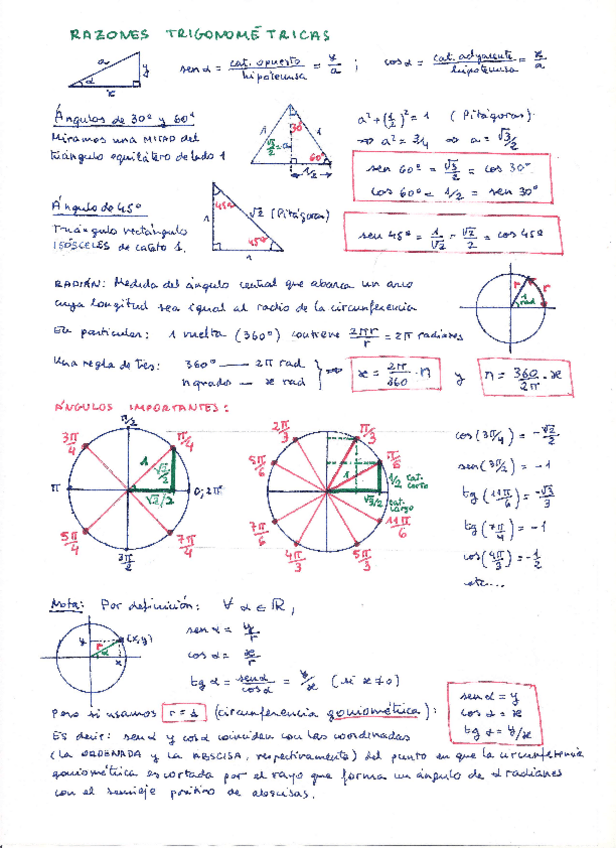 RAZONES TRIGONOMÉTRICAS
a y α x
sen α = cat. opuesto / hipotenusa = y/a ; cos α = cat. adyacente / hipotenusa = x/a
Ángulos de 30º y 60º
Miramos una MITAD del
triángulo equilátero de lado 1
1 30 1 √3/2 = a 60º 1/2
a² + (1/2)² = 1 (Pitágoras)
⇒ a² = 3/4 ⇒ a = √3/2
sen 60º = √3/2 = cos 30º
cos 60º = 1/2 = sen 30º
Ángulo de 45º
Triángulo rectángulo
ISÓSCELES de cateto 1.
45º √2 (Pitágoras) 1 45º 1
sen 45º = 1/√2 = √2/2 = cos 45º
RADIÁN: Medida del ángulo central que abarca un arco
cuya longitud sea igual al radio de la circunferencia
r r 1 rad
En particular: 1 vuelta (360º) contiene 2πr/r = 2π radianes
Una regla de tres: 360º — 2π rad
n grados — x rad
⇒ x = 2π/360 · n y n = 360/2π · x
ÁNGULOS IMPORTANTES:
π/2
3π/4 π/4
1 √2/2
π √2/2 0, 2π
5π/4 7π/4
3π/2
2π/3 π/3
5π/6 π/6
1 1/2 cat. corto
√3/2 cat. largo
7π/6 11π/6
4π/3 5π/3
cos(3π/4) = -√2/2
sen(3π/2) = -1
tg(11π/6) = -√3/3
tg(7π/4) = -1
cos(4π/3) = -1/2
etc...
Nota: Por definición: ∀ α ∈ ℝ,
y (x,y) r α x
sen α = y/r
cos α = x/r
tg α = sen α / cos α = y/x (si x ≠ 0)
Pero si usamos r = 1 (circunferencia goniométrica):
sen α = y
cos α = x
tg α = y/x
Es decir: sen α y cos α coinciden con las coordenadas
(la ORDENADA y la ABSCISA, respectivamente) del punto en que la circunferencia
goniométrica es cortada por el rayo que forma un ángulo de α radianes
con el semieje positivo de abscisas.